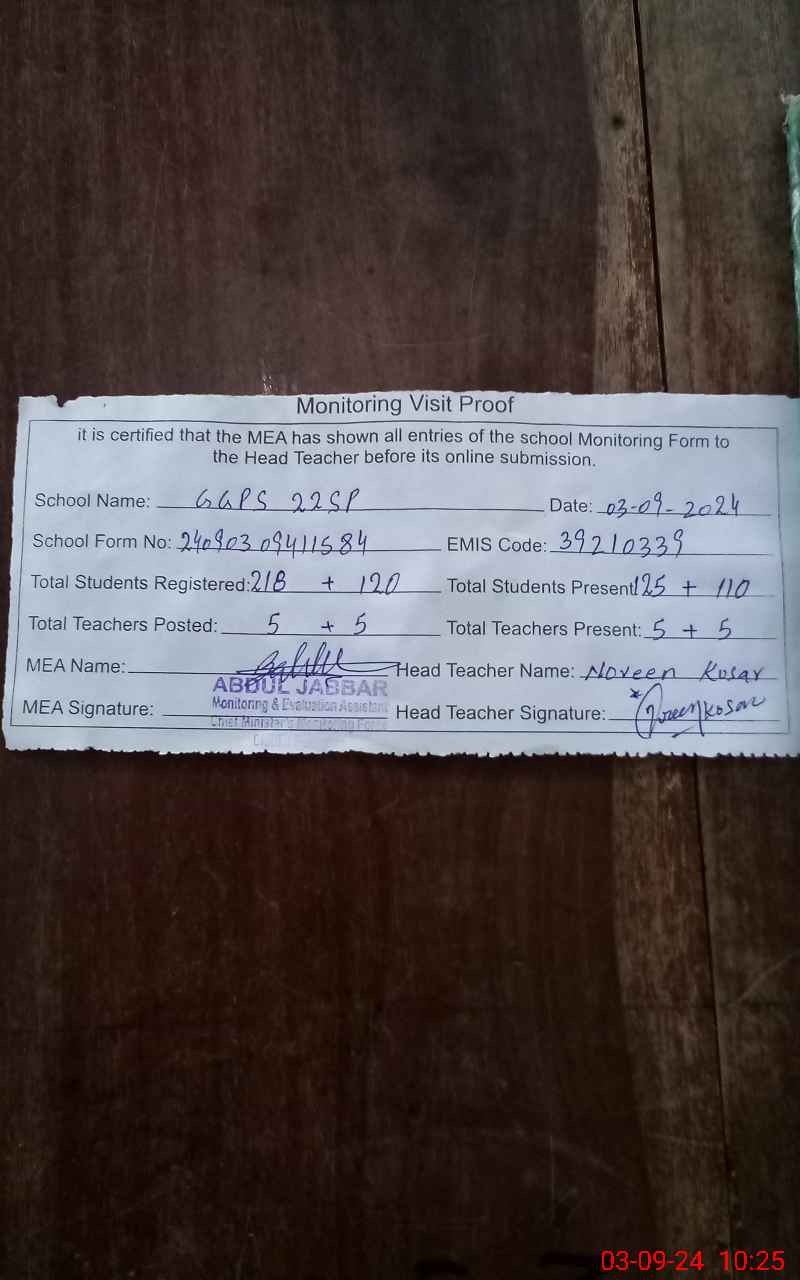 Monitoring Visit Proof
it is certified that the MEA has shown all entries of the school Monitoring Form to
the Head Teacher before its online submission.
School Name: GGPS 22SP Date: 03-09-2024
School Form No: 24090309411584 EMIS Code: 39210339
Total Students Registered: 218 + 120 Total Students Present 125 + 110
Total Teachers Posted: 5 + 5 Total Teachers Present: 5 + 5
MEA Name: Head Teacher Name: Noreen Kosar
ABDUL JABBAR
MEA Signature: Monitoring & Evaluation Assistant Head Teacher Signature: Noreen Kosar
Chief Minister's Monitoring Force
03-09-24 10:25